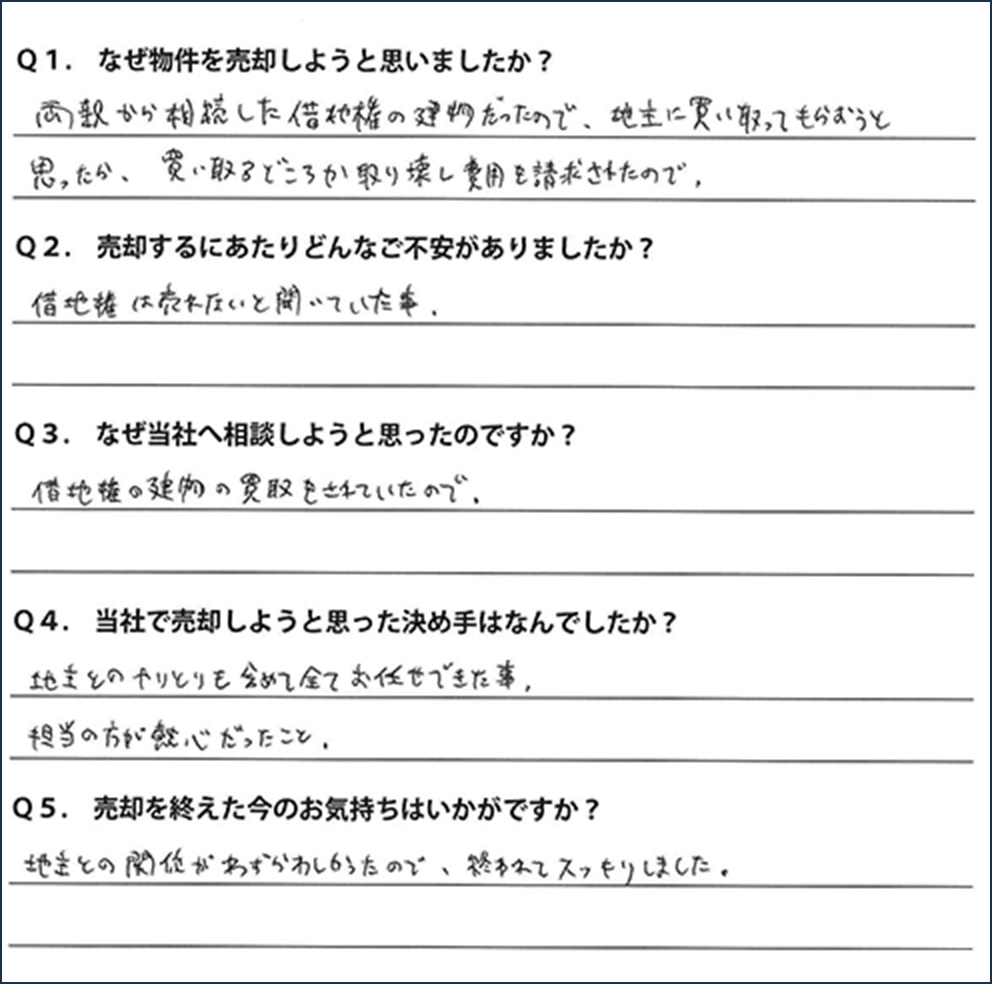 Q1. なぜ物件を売却しようと思いましたか？
両親から相続した借地権の建物だったので、地主に買い取ってもらおうと
思ったら、買い取るどころか取り壊し費用を請求されたので。
Q2. 売却するにあたりどんなご不安がありましたか？
借地権は売れないと聞いていた事。
Q3. なぜ当社へ相談しようと思ったのですか？
借地権の建物の買取をされていたので。
Q4. 当社で売却しようと思った決め手はなんでしたか？
地主とのやりとりも含めて全てお任せできた事。
担当の方が熱心だったこと。
Q5. 売却を終えた今のお気持ちはいかがですか？
地主との関係がわずらわしかったので、終われてスッキリしました。